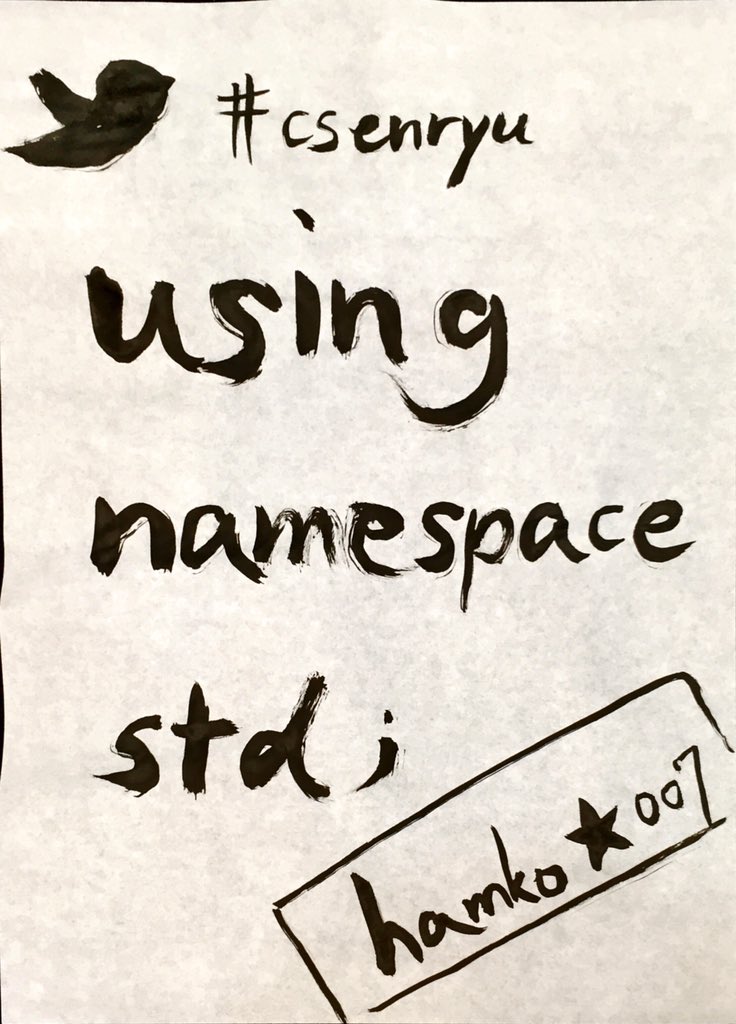 #csenryu
using
namespace
std;
hamko★007